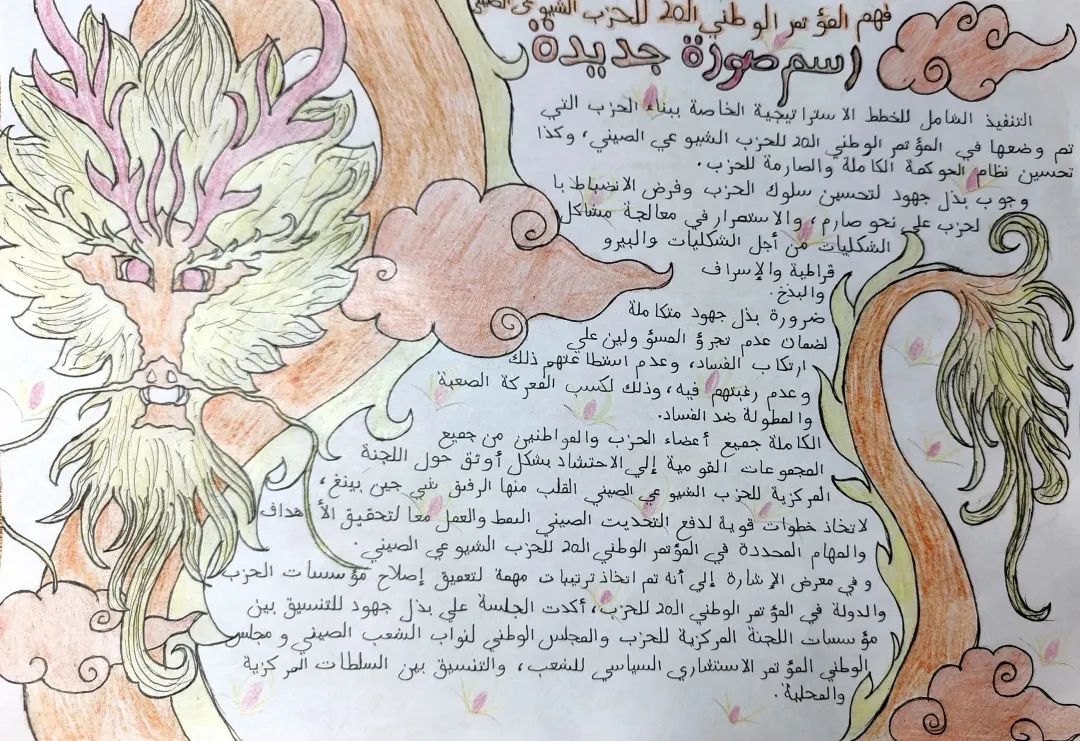 فهم المؤتمر الوطني الـ20 للحزب الشيوعي الصيني
ارسم صورة جديدة
التنفيذ الشامل للخطط الاستراتيجية الخاصة ببناء الحزب التي
تم وضعها في المؤتمر الوطني الـ20 للحزب الشيوعي الصيني، وكذا
تحسين نظام الحوكمة الكاملة والصارمة للحزب.
وجوب بذل جهود لتحسين سلوك الحزب وفرض الانضباط با
لحزب على نحو صارم، والاستمرار في معالجة مشاكل
الشكليات من أجل الشكليات والبيرو
قراطية والإسراف
والبذخ.
ضرورة بذل جهود متكاملة
لضمان عدم تجرؤ المسؤولين علي
ارتكاب الفساد، وعدم استطاعتهم ذلك
وعدم رغبتهم فيه، وذلك لكسب المعركة الصعبة
والمطولة ضد الفساد.
الكاملة جميع أعضاء الحزب والمواطنين من جميع
المجموعات القومية إلي الاحتشاد بشكل أوثق حول اللجنة
المركزية للحزب الشيوعي الصيني القلب منها الرفيق شي جين بينغ،
لاتخاذ خطوات قوية لدفع التحديت الصيني النمط والعمل معا لتحقيق الأهداف
والمهام المحددة في المؤتمر الوطني الـ20 للحزب الشيوعي الصيني.
وفي معرض الإشارة إلي أنه تم اتخاذ ترتيبات مهمة لتعميق إصلاح مؤسسات الحزب
والدولة في المؤتمر الوطني الـ20 للحزب، أكدت الجلسة علي بذل جهود للتنسيق بين
مؤسسات اللجنة المركزية للحزب والمجلس الوطني لنواب الشعب الصيني ومجلس
الوطني المؤتمر الاستشاري السياسي للشعب، والتنسيق بين السلطات المركزية
والمحلية.